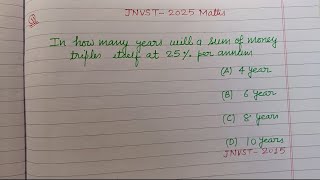 JNVST-2025 Maths
In how many years will a sum of money
triples itself at 25% per annum
(A) 4 year
(B) 6 year
(C) 8 years
(D) 10 years
JNVST-2025